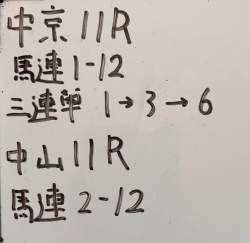 中京11R
馬連1-12
三連単 1→3→6
中山11R
馬連2-12